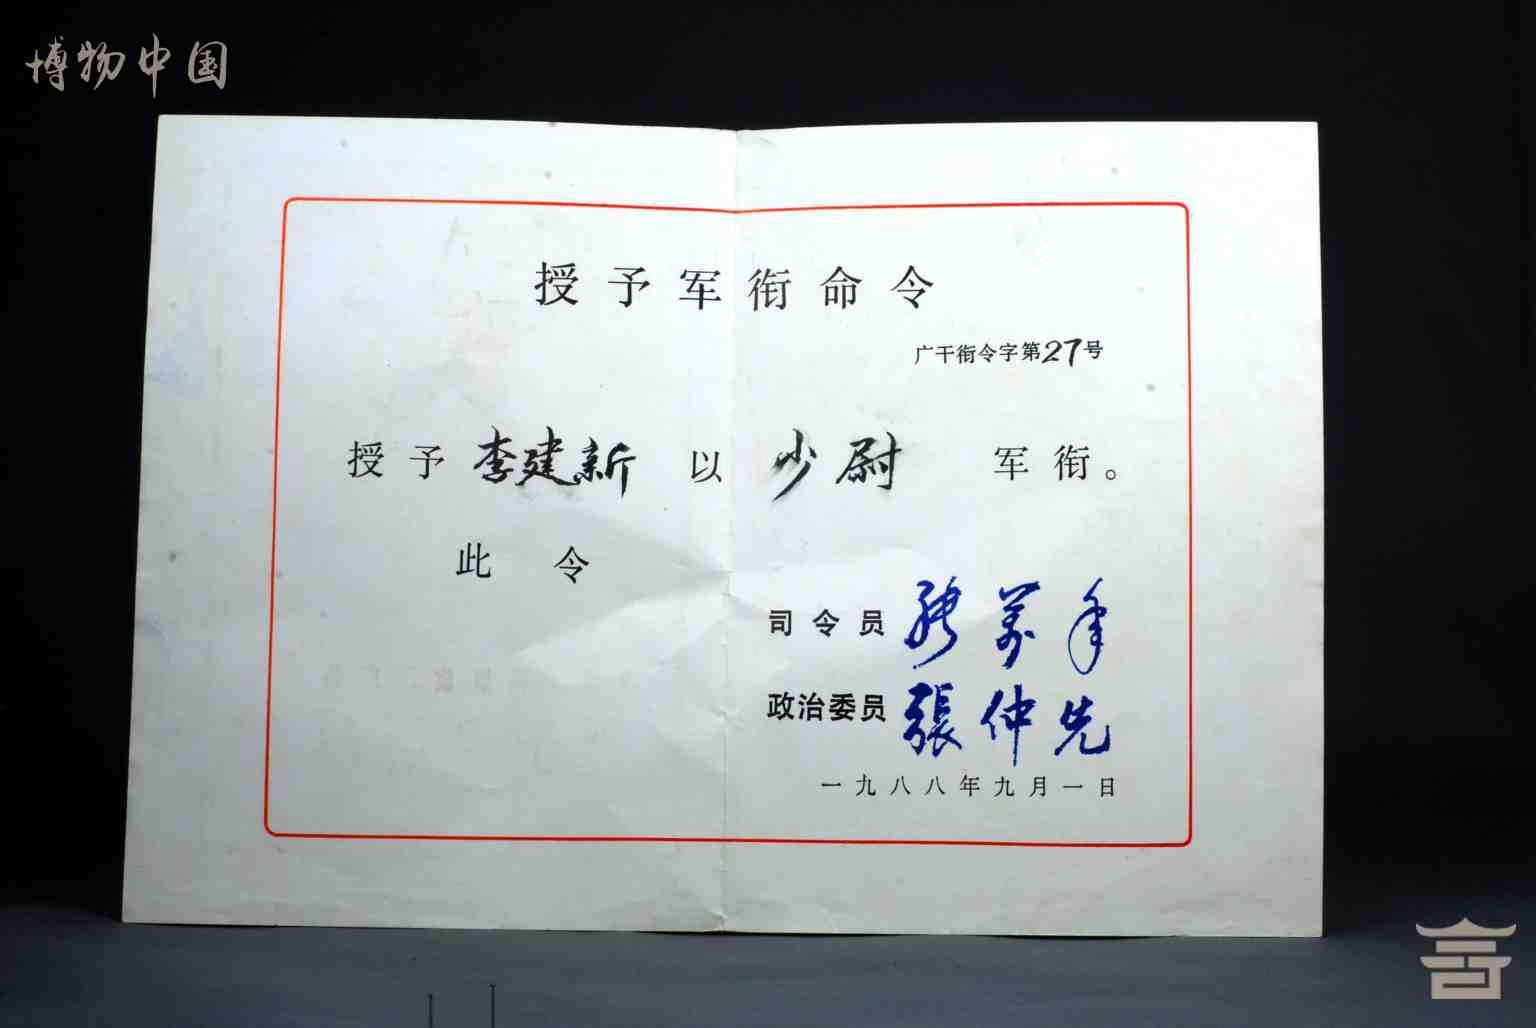 博物中国
授予军衔命令
广干衔令字第27号
授予李建新以少尉军衔。
此令
司令员 张万年
政治委员 張仲先
一九八八年九月一日